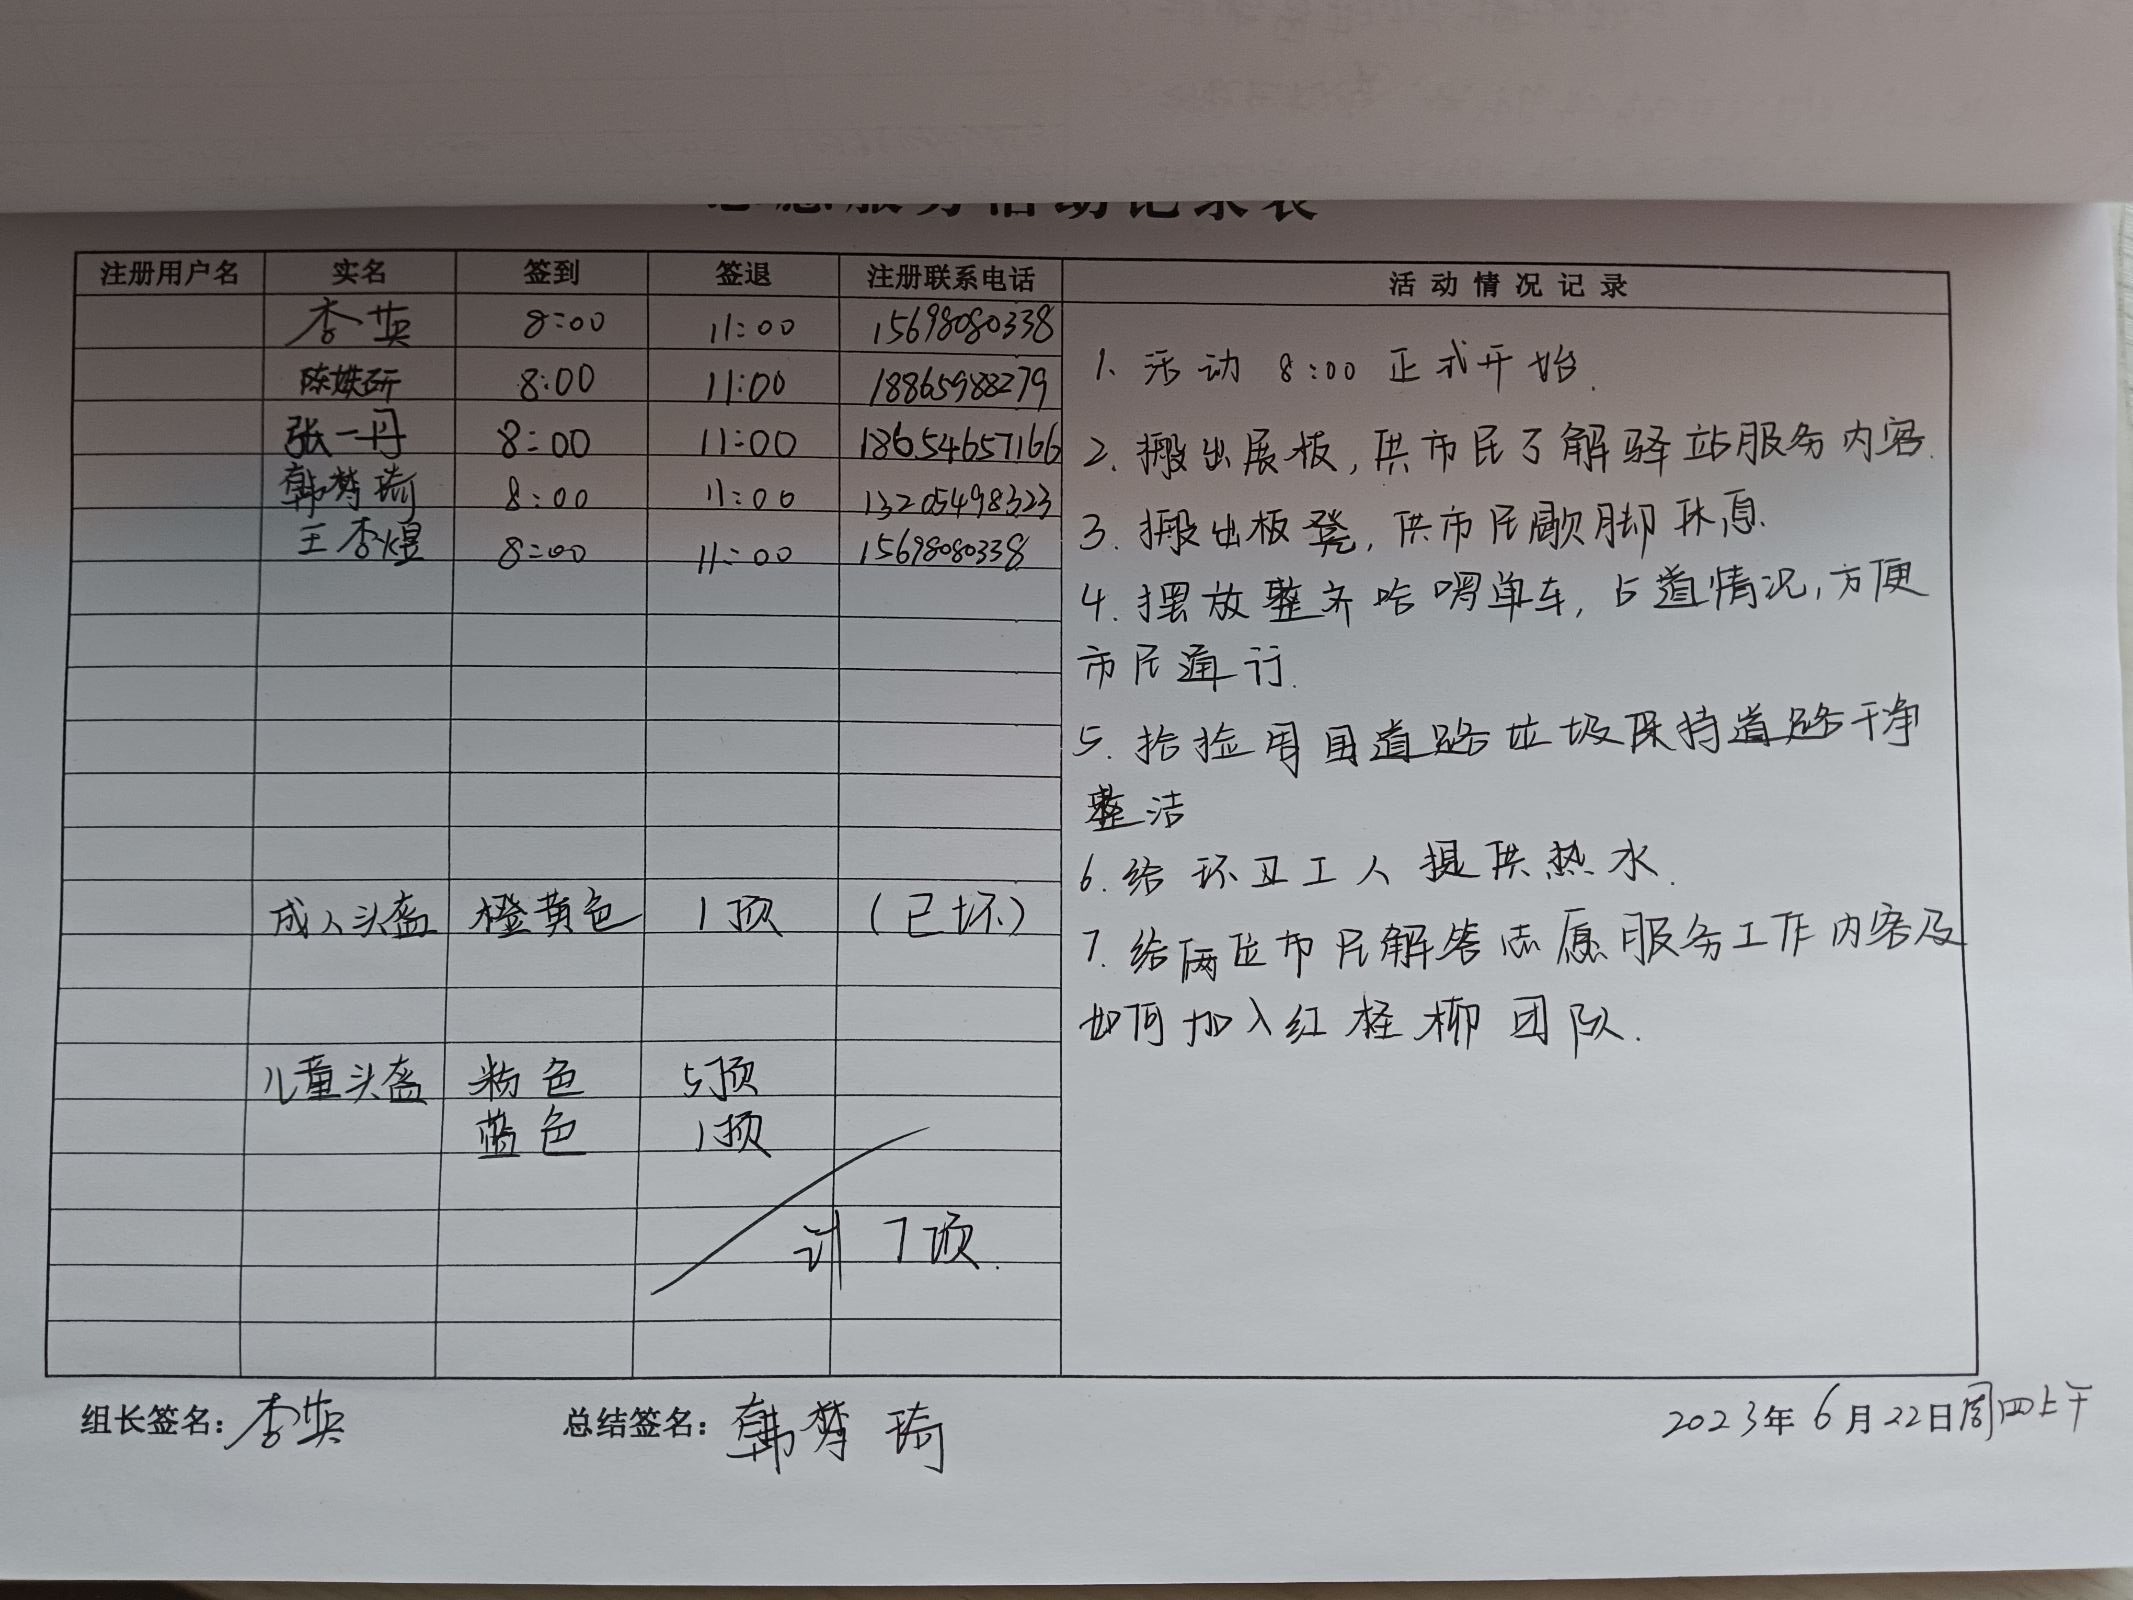 志愿服务活动记录表
注册用户名 实名 签到 签退 注册联系电话 活动情况记录
李英 8:00 11:00 15698080338
陈姝研 8:00 11:00 18865988279
张一丹 8:00 11:00 18654657166
韩梦琦 8:00 11:00 13205498323
王李煜 8:00 11:00 15698080338
成人头盔 橙黄色 1顶 (已坏)
儿童头盔 粉色 5顶
蓝色 1顶
计7顶.
1. 活动 8:00 正式开始.
2. 搬出展板,供市民了解驿站服务内容.
3. 搬出板凳,供市民歇脚休息.
4. 摆放整齐哈啰单车,占道情况,方便
市民通行.
5. 拾捡周围道路垃圾保持道路干净
整洁
6. 给环卫工人提供热水.
7. 给两位市民解答志愿服务工作内容及
如何加入红柽柳团队.
组长签名:李英 总结签名:韩梦琦 2023年6月22日周四上午